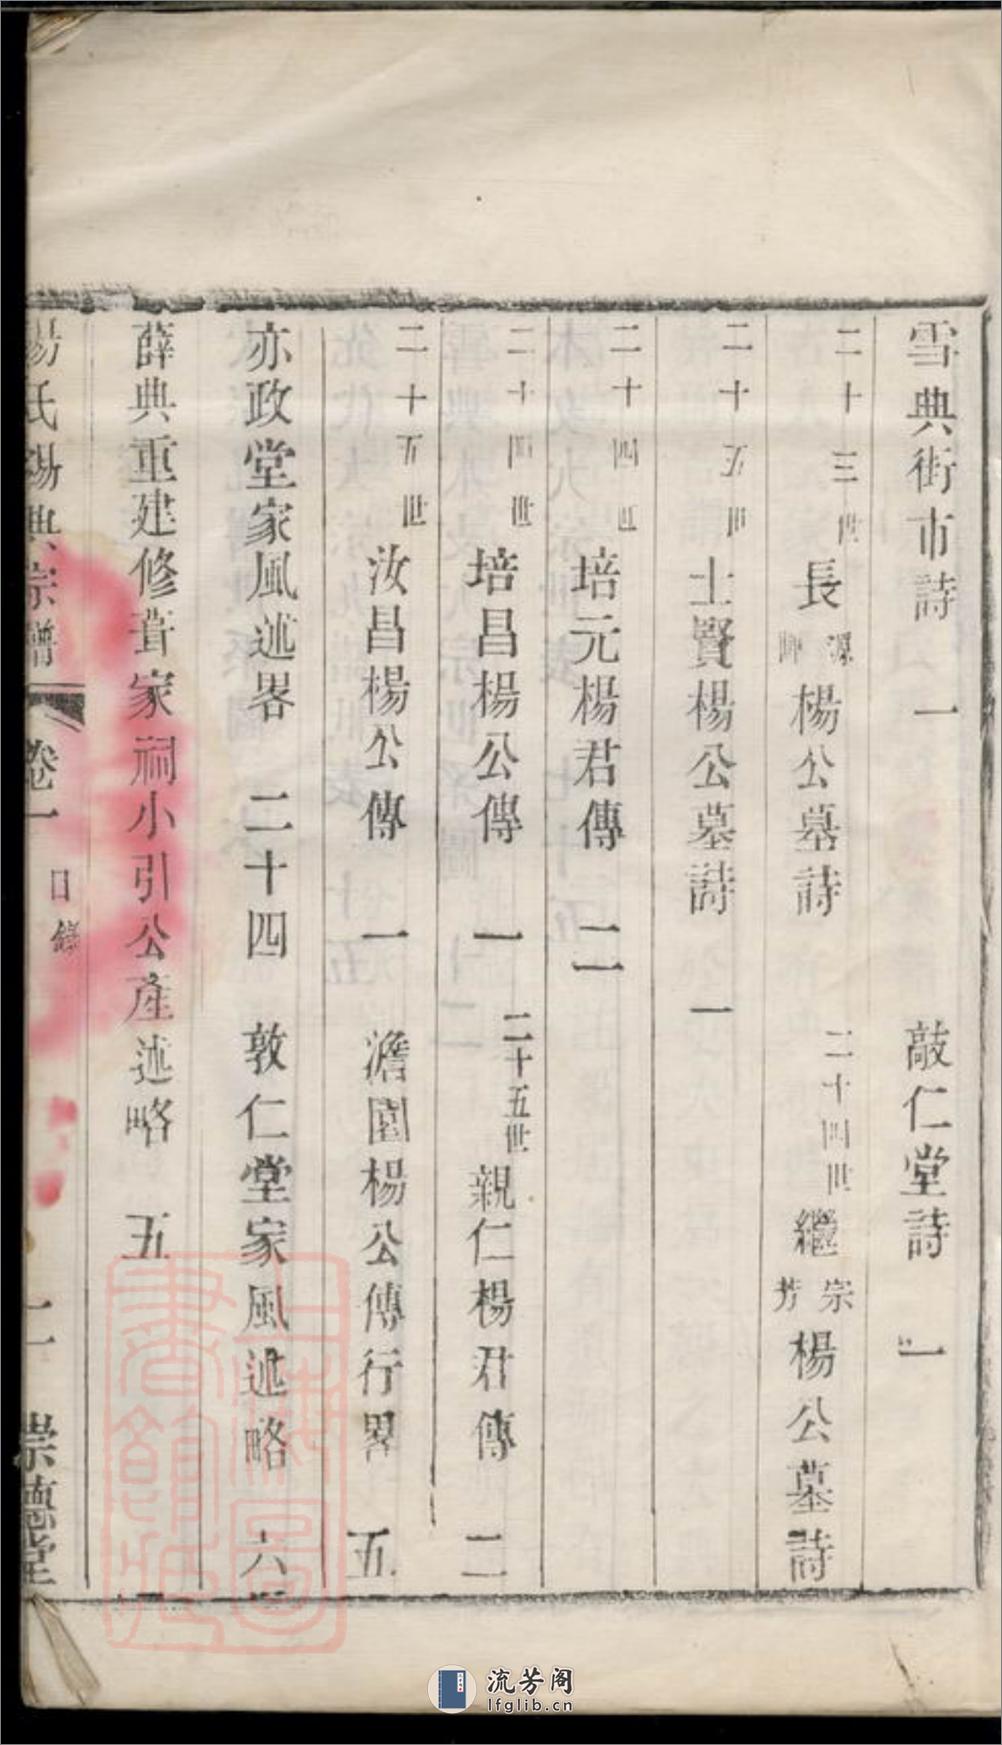 雪典街市詩 一 敲仁堂詩 一
二十三世 長源暉 楊公墓詩 二十四世 繼宗芳 楊公墓詩
二十五世 士賢楊公墓詩 一
二十四世 培元楊君傳 二
二十四世 培昌楊公傳 一 二十五世 親仁楊君傳 二
二十五世 汝昌楊公傳 一 澹園楊公傳行畧 五
亦政堂家風述畧 二十四 敦仁堂家風述略 六
薛典重建修葺家祠小引公產述略 五
楊氏錫典宗譜 卷一 目錄 二 崇德堂
上海圖書館藏
流芳阁
lfglib.cn